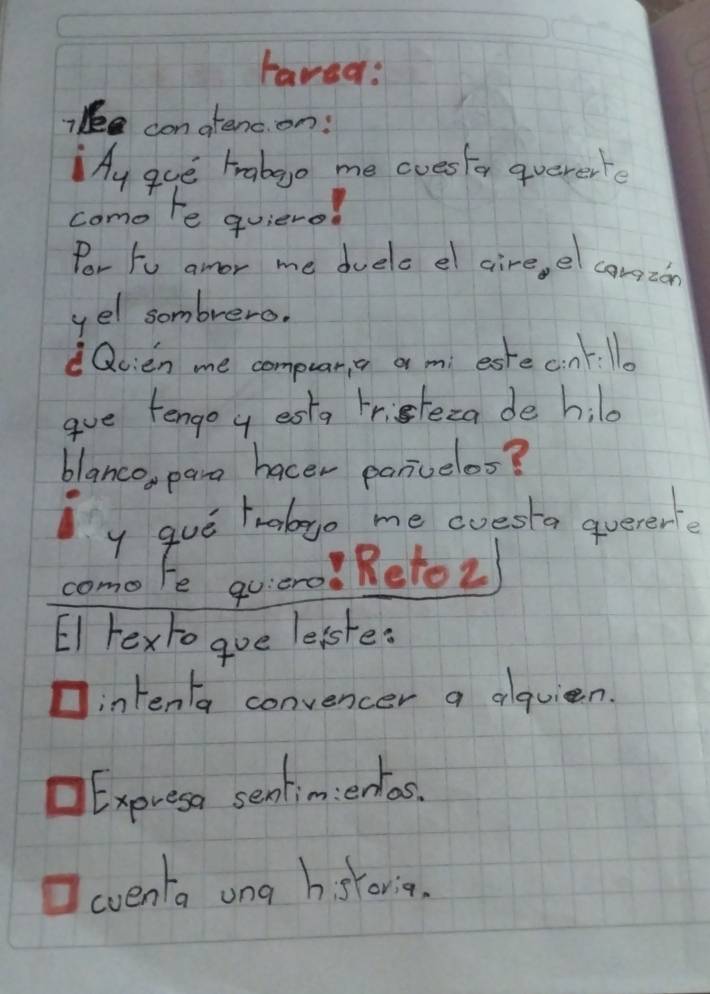 tarea:
1 Lee con atencion:
¡Ay qué trabajo me cuesta quererte
como te quiero!
Por tu amor me duele el aire, el corazón
y el sombrero.
¿Quién me compraría a mi este cintillo
que tengo y esta tristeza de hilo
blanco, para hacer pañuelos?
¡ y qué trabajo me cuesta quererte
como te quiero! Reto 2
El texto que leiste:
intenta convencer a alguien.
Expresa sentimientos.
cuenta una historia.